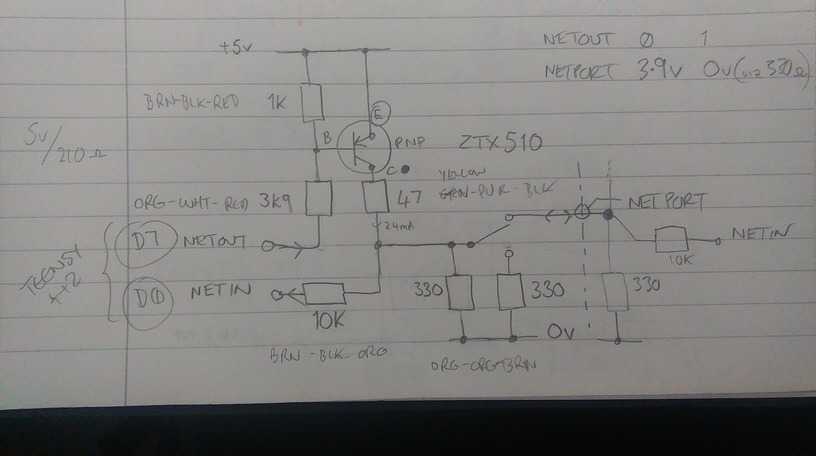 +5v
NETOUT 0 1
NETPORT 3.9v 0v (via 330Ω)
BRN-BLK-RED 1K
E
5v/210Ω
B
PNP ZTX510
C
YELLOW
GRN-PUR-BLK
ORG-WHT-RED 3K9
47
NETPORT
24mA
D7 NETOUT
NETIN
10K
TEENSY
++2
D0 NETIN
330
330
330
10K
0v
BRN-BLK-ORG
ORG-ORG-BRN